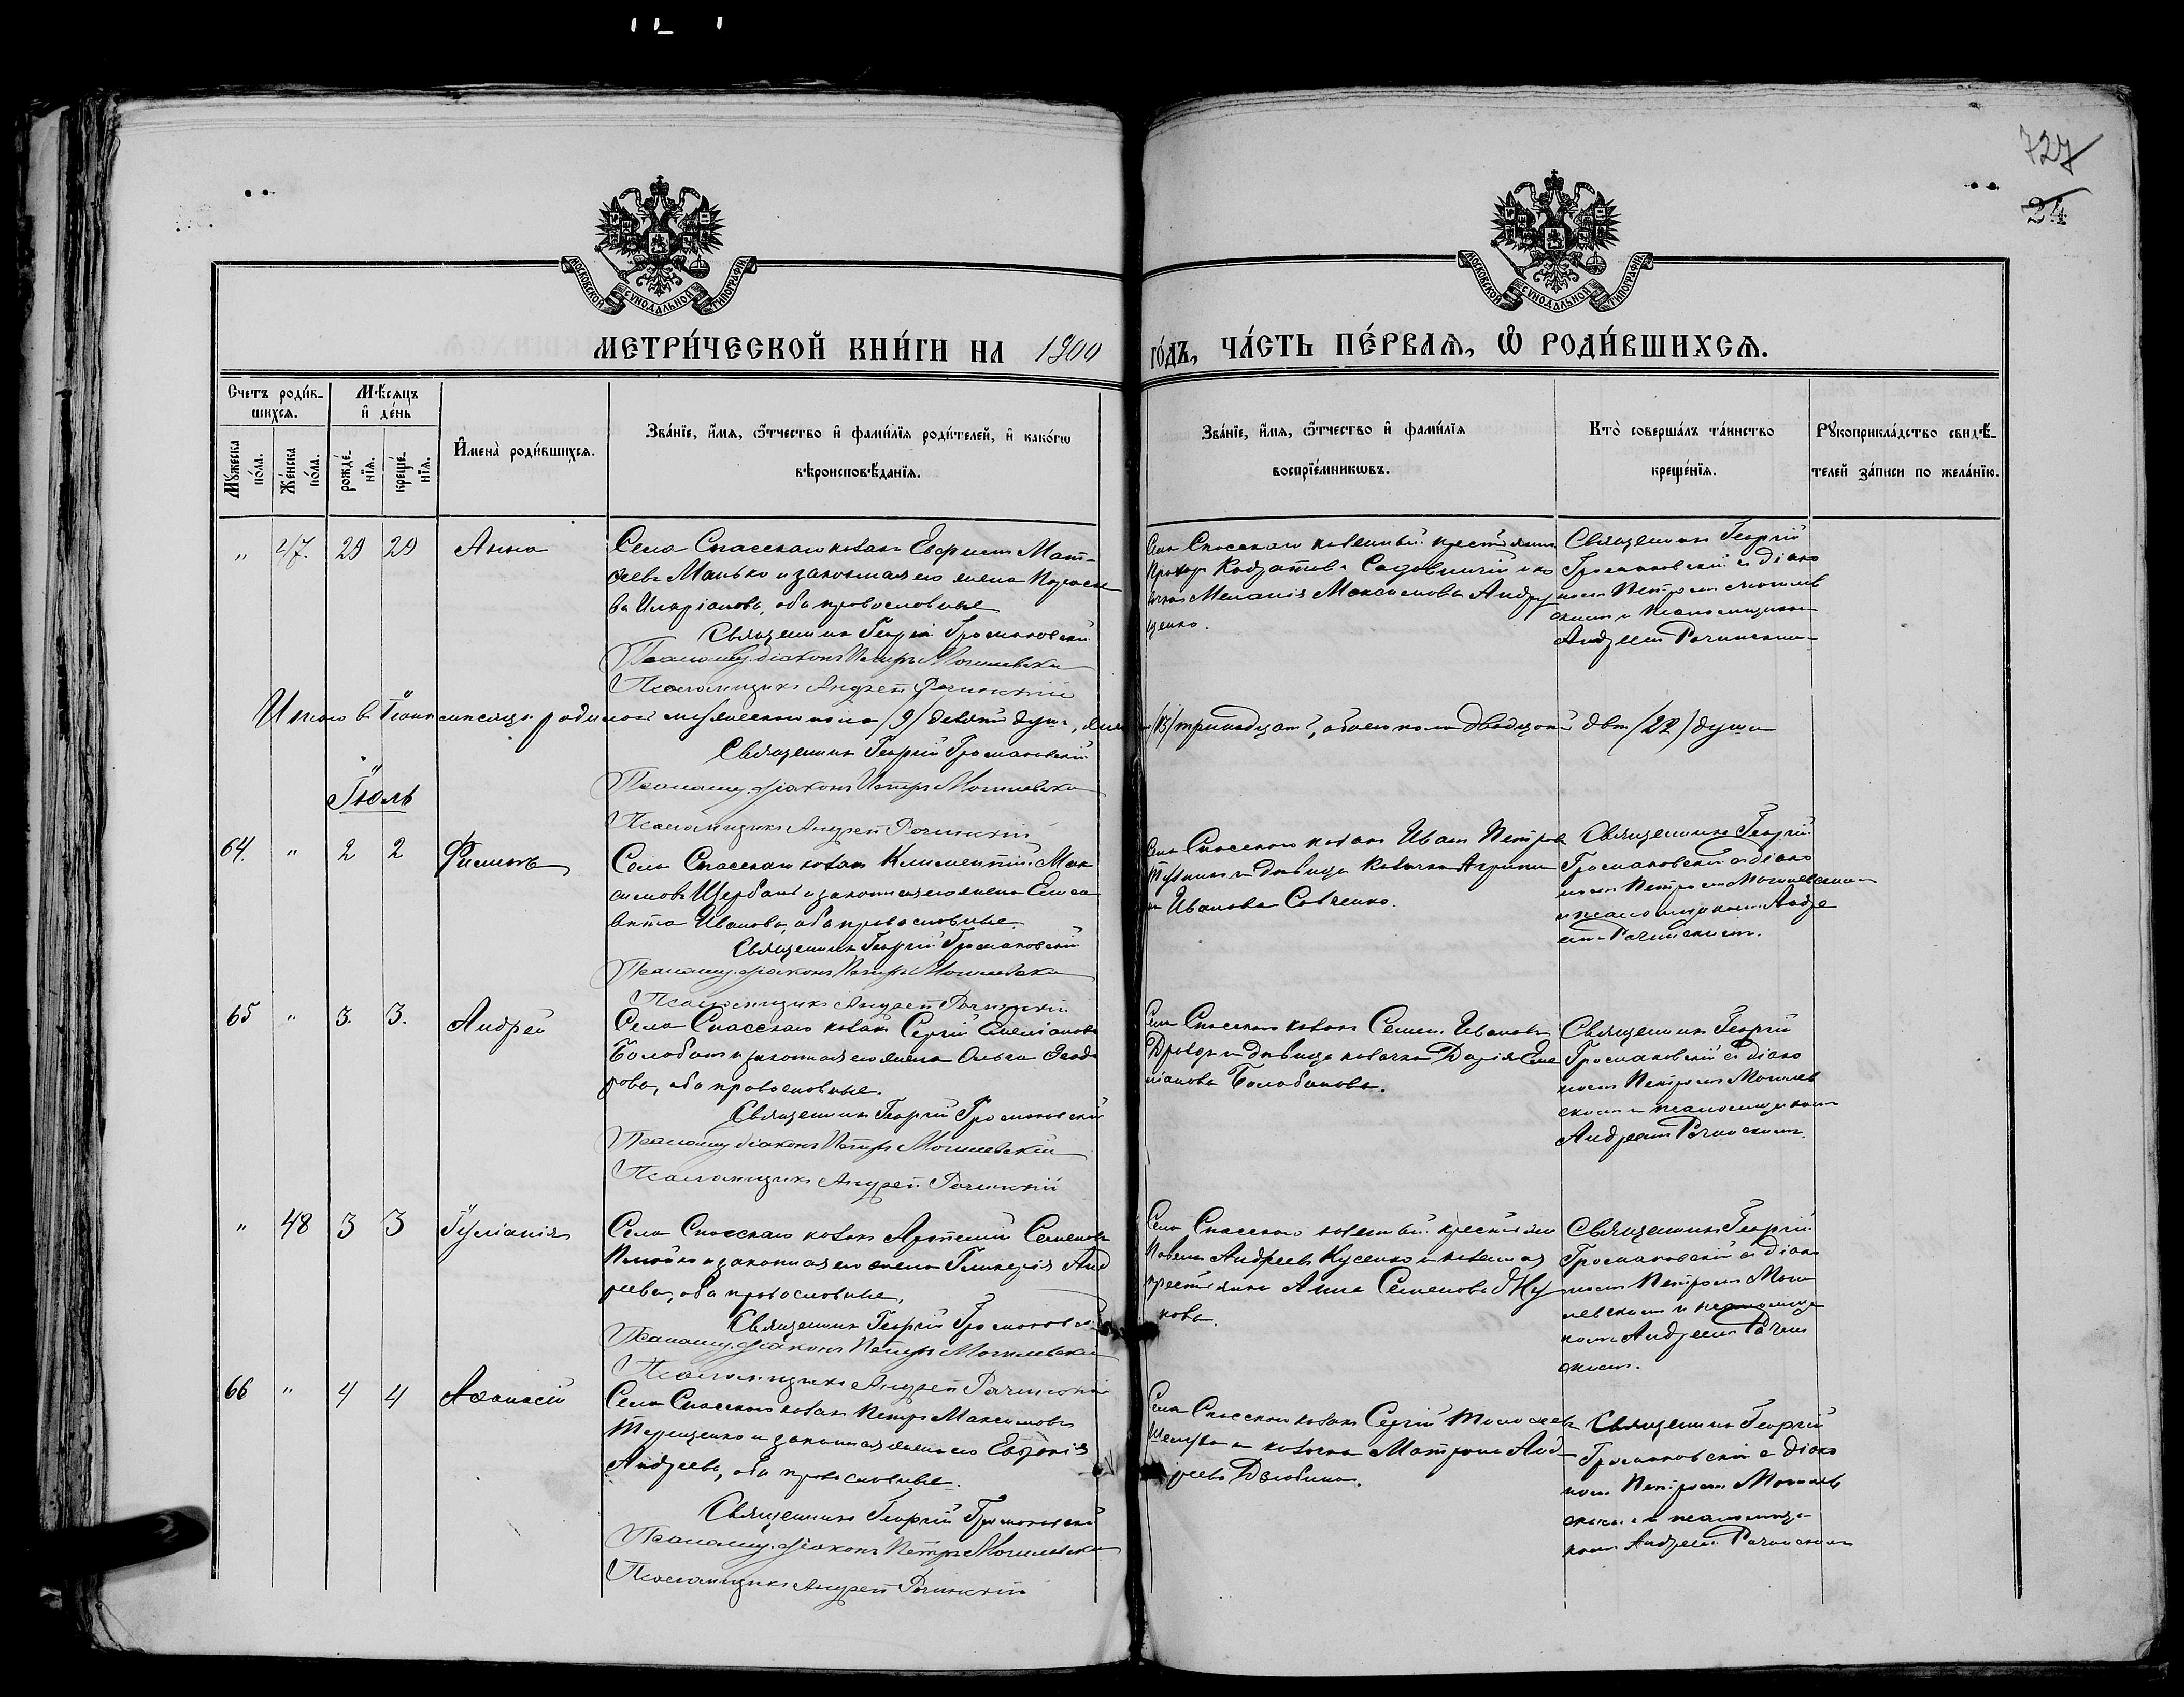 727
24
МОСКОВСКОЙ СѴНОДАЛЬНОЙ ТИПОГРАФІИ
МОСКОВСКОЙ СѴНОДАЛЬНОЙ ТИПОГРАФІИ
МЕТРИ́ЧЕСКОЙ КНИ́ГИ НА 1900 ГО́ДЪ, ЧА́СТЬ ПЕ́РВАѦ, Ѽ РОДИ́ВШИХСѦ.
Счетъ роди́в-
шихсѧ.
Мѣсѧцъ
и де́нь
Мꙋжеска
по́ла.
Же́нска
по́ла.
рожде́-
нїѧ.
креще́-
нїѧ.
И҆мена̀ роди́вшихсѧ.
Зва́нїе, и҆́мѧ, ѻ҆́тчество и҆ фами́лїѧ роди́телей, и҆ како́гѡ
вѣроисповѣ́данїѧ.
Зва́нїе, и҆́мѧ, ѻ҆́тчество и҆ фами́лїѧ
воспрїе́мникѡвъ.
Кто̀ соверша́лъ та́инство
креще́нїѧ.
Рꙋкоприкла́дство свидѣ́-
телей за́писи по жела́нїю.
" 47. 29 29 Анна
Села Спасскаго козакъ Мат-
ѳеевъ Манько и законная его жена Параске
ва Иларіонова, оба православные
Священникъ Георгій Громаковскій
Псаломщ. діаконъ Петръ Могилевскій
Псаломщикъ Андрей Рачинскій
Села Спасскаго крестьянинъ
Садовничій и ко
зачка Меланія Максимова Андру
щенко.
Священникъ Георгій
Громаковскій съ діако
номъ Петромъ Могилев
скимъ и псаломщикомъ
Андреемъ Рачинскимъ
Итого въ Іюнѣ мѣсяцѣ родилось мужескаго пола /9/ девять душъ, /13/ тринадцать, обоего пола двадцать двѣ /22/ души
Священникъ Георгій Громаковскій
Псаломщ. діаконъ Петръ Могилевскій
Псаломщикъ Андрей Рачинскій
Іюль
64. " 2 2 Филимонъ
Села Спасскаго козакъ Климентій Мак
симовъ Щербань и законная его жена Елиса
вета Иванова, оба православные.
Священникъ Георгій Громаковскій
Псаломщ. діаконъ Петръ Могилевскій
Псаломщикъ Андрей Рачинскій
Села Спасскаго козакъ Иванъ Петровъ
и дѣвица козачка Агрипи
на Иванова Савченко.
Священникъ Георгій
Громаковскій съ діако
номъ Петромъ Могилевскимъ
и псаломщикомъ Андре
емъ Рачинскимъ.
65 " 3. 3. Андрей
Села Спасскаго козакъ Сергій Емеліановъ
Балабанъ и законная его жена Ольга Ѳеодо
рова, оба православные.
Священникъ Георгій Громаковскій
Псаломщ діаконъ Петръ Могилевскій
Псаломщикъ Андрей Рачинскій
Села Спасскаго козакъ Семенъ Ивановъ
и дѣвица козачка Дарія Еме
ліанова Балабанова.
Священникъ Георгій
Громаковскій съ діако
номъ Петромъ Могилев
скимъ и псаломщикомъ
Андреемъ Рачинскимъ.
" 48 3 3 Іуліанія
Села Спасскаго козакъ Артемій Семеновъ
и законная его жена Гликерія Анд
реева, оба православные.
Священникъ Георгій Громаковскій
Псаломщ. діаконъ Петръ Могилевскій
Псаломщикъ Андрей Рачинскій
Села Спасскаго крестьянинъ
Павелъ Андреевъ Кусенко и
крестьянка Анна Семенова Жу
кова.
Священникъ Георгій
Громаковскій съ діако
номъ Петромъ Моги
левскимъ и псаломщи
комъ Андреемъ Рачин
скимъ.
66 " 4 4 Аѳанасій
Села Спасскаго козакъ Петръ Максимовъ
Терещенко и законная жена его Евфросинія
Андреева, оба православные.
Священникъ Георгій Громаковскій
Псаломщ. діаконъ Петръ Могилевскій
Псаломщикъ Андрей Рачинскій
Села Спасскаго козакъ Сергій Тимоѳеевъ
и козачка Матрона Анд
реева Дзюбина.
Священникъ Георгій
Громаковскій съ діако
номъ Петромъ Могилев
скимъ и псаломщи
комъ Андреемъ Рачинскимъ